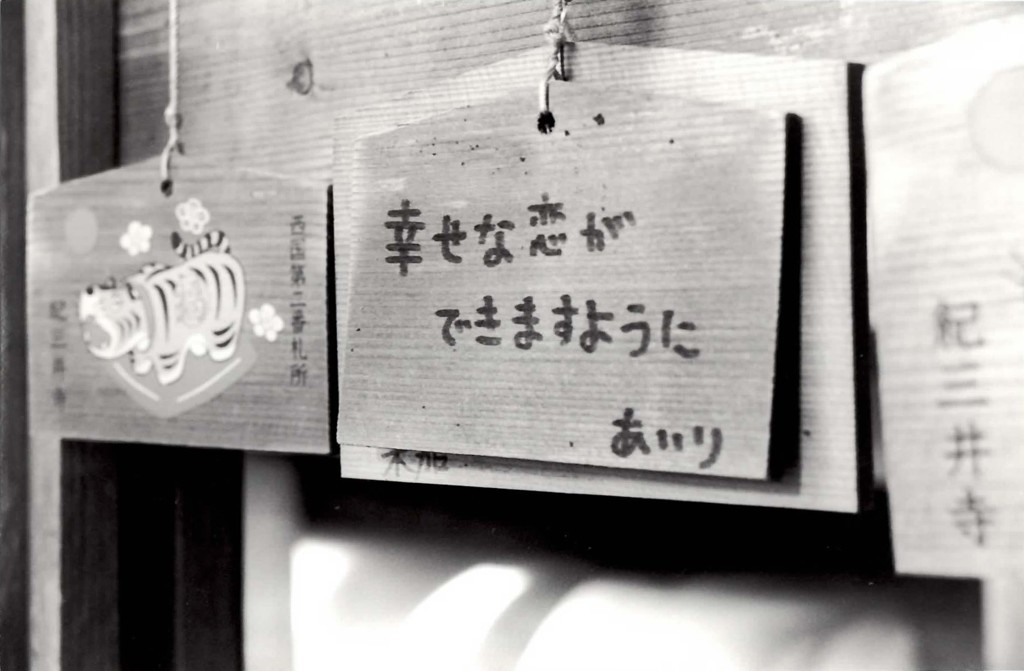 幸せな恋が
できますように
あいり
西国第二番札所
紀三井寺
紀三井寺